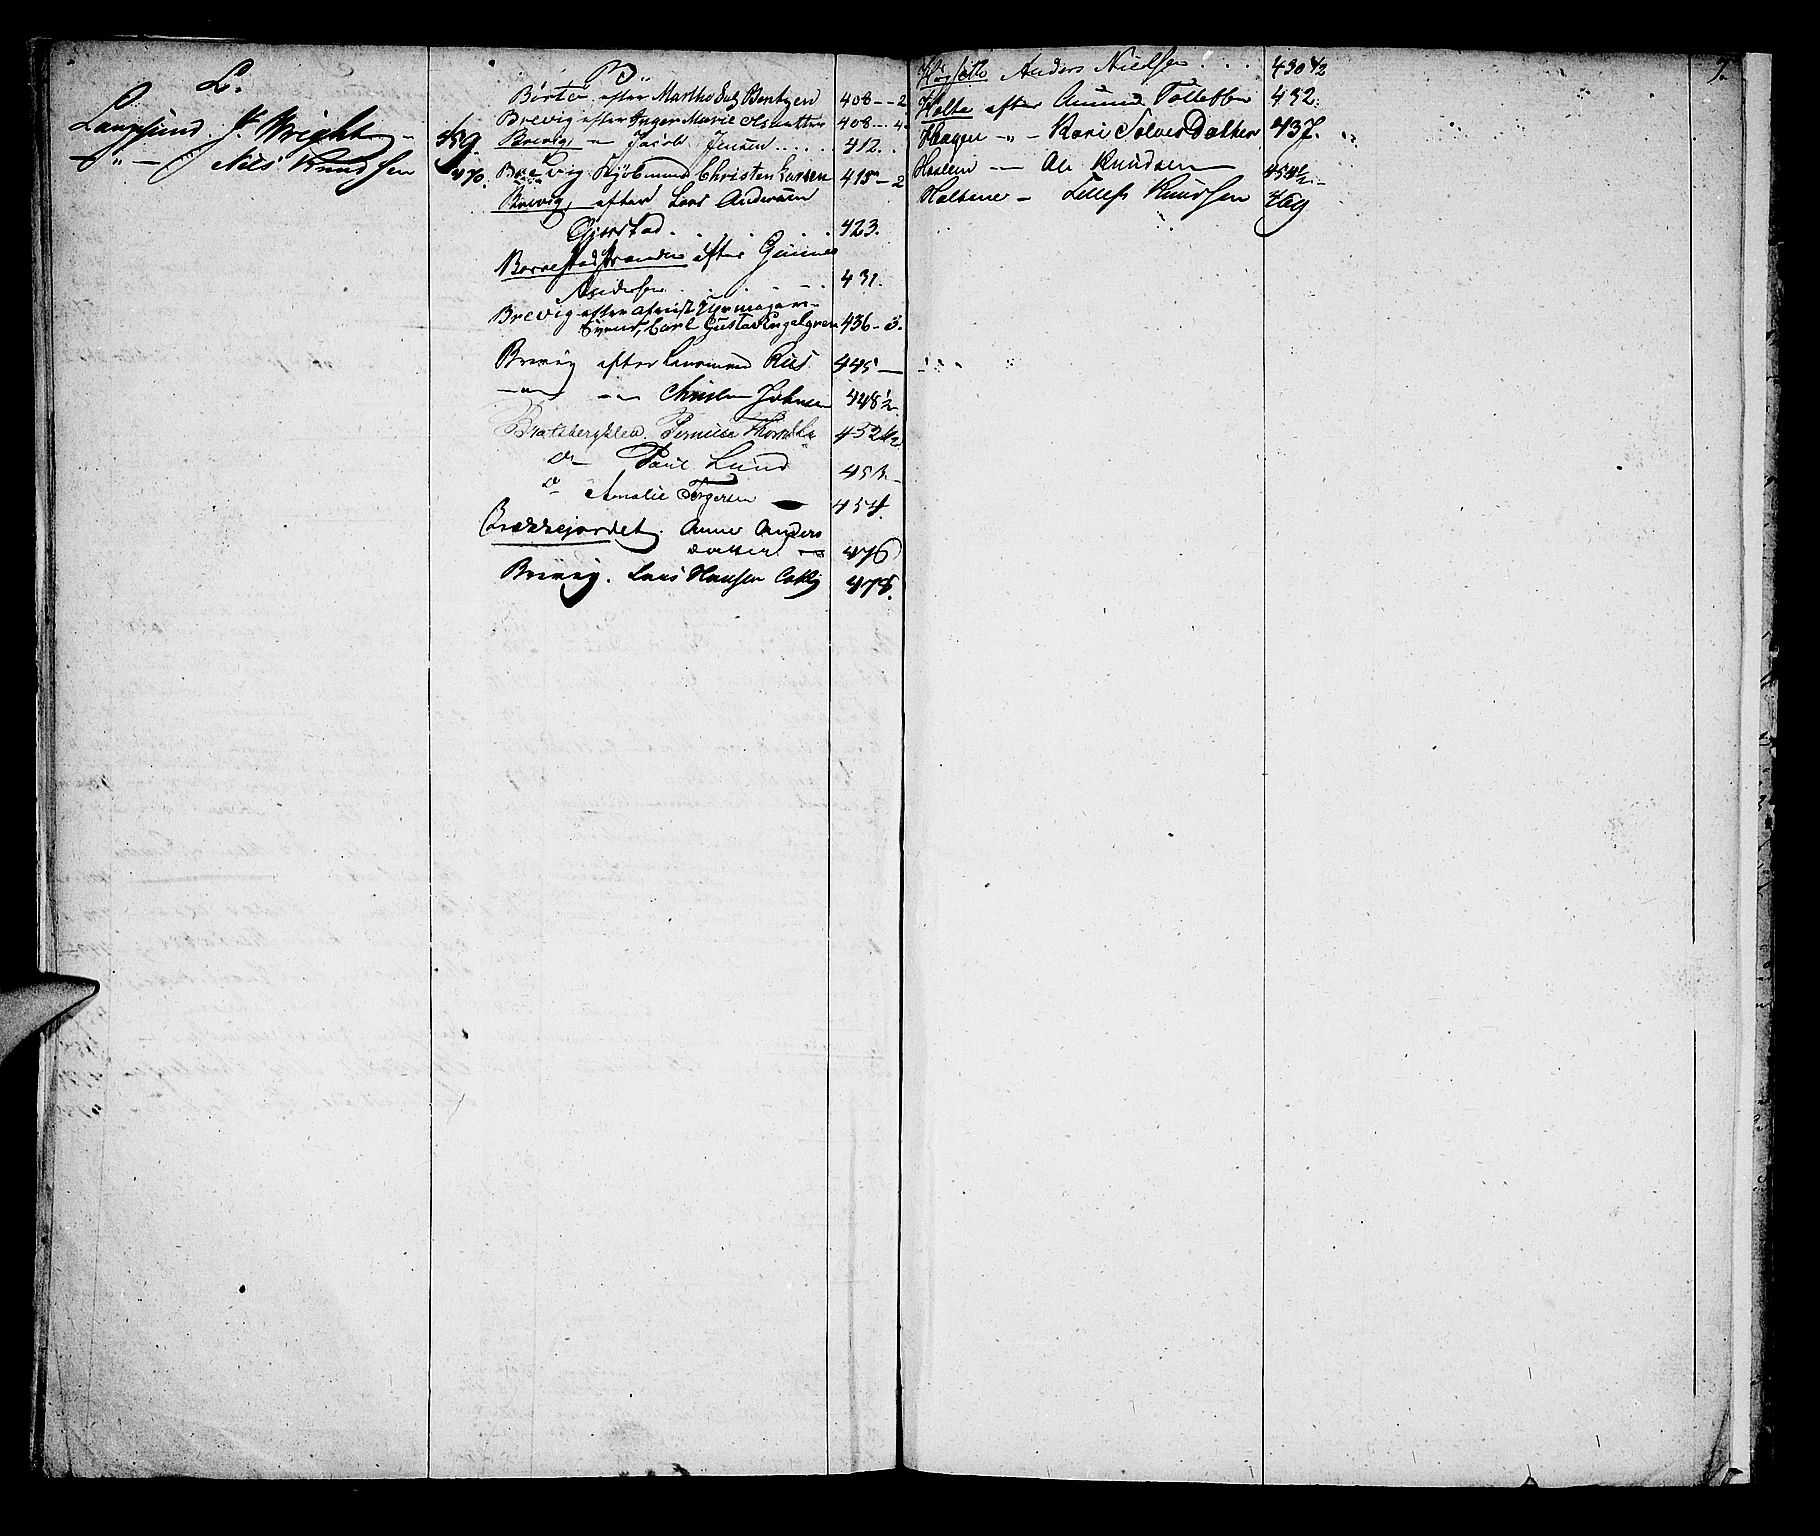 L.
Langesund. J. Wright - 459.
- " - Nils Knudsen 470.
B
Börte. efter Marthe Salg Bentzen 408 - - 2
Brevig efter Inger Marie Olsdatter 408 - - 4.
Brevig, - Jacob Jensen ...... 412.
Brevig. Kjöbmand Christen Larsen 415 - 2
Brevig, efter Lars Andersen
Gjerstad. . . . . 423.
Borrestadstranden efter Gunner
Andersen . . . . . 431.
Brevig efter
Carl Gustav Engelgren 436 - 3.
Brevig efter Ruus 445 -
- " - - " - Christen Johnsen 448 1/2.
Bratsbergklev. Pernille 452 1/2
do Paul Lund 453.
do Amalie Torgersen 454.
Brekkejordet. Anne Anders
datter 476
Brevig. Lars Hansen 478.
7.
Anders Nielsen . . . 430 1/2
Holte efter Amund Tollefsen 432.
Haagen - " - Kari Solvesdatter 437.
Haslem - - Ole Knudsen 454 1/2.
Holtene - Tellef Knudsen 469